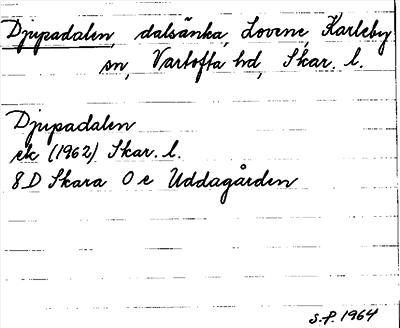 Djupadalen, dalsänka, Lovene, Karleby
sn, Vartofta hd, Skar. l.
Djupadalen
ek (1962) Skar. l.
8D Skara 0 e Uddagården
S.P. 1964